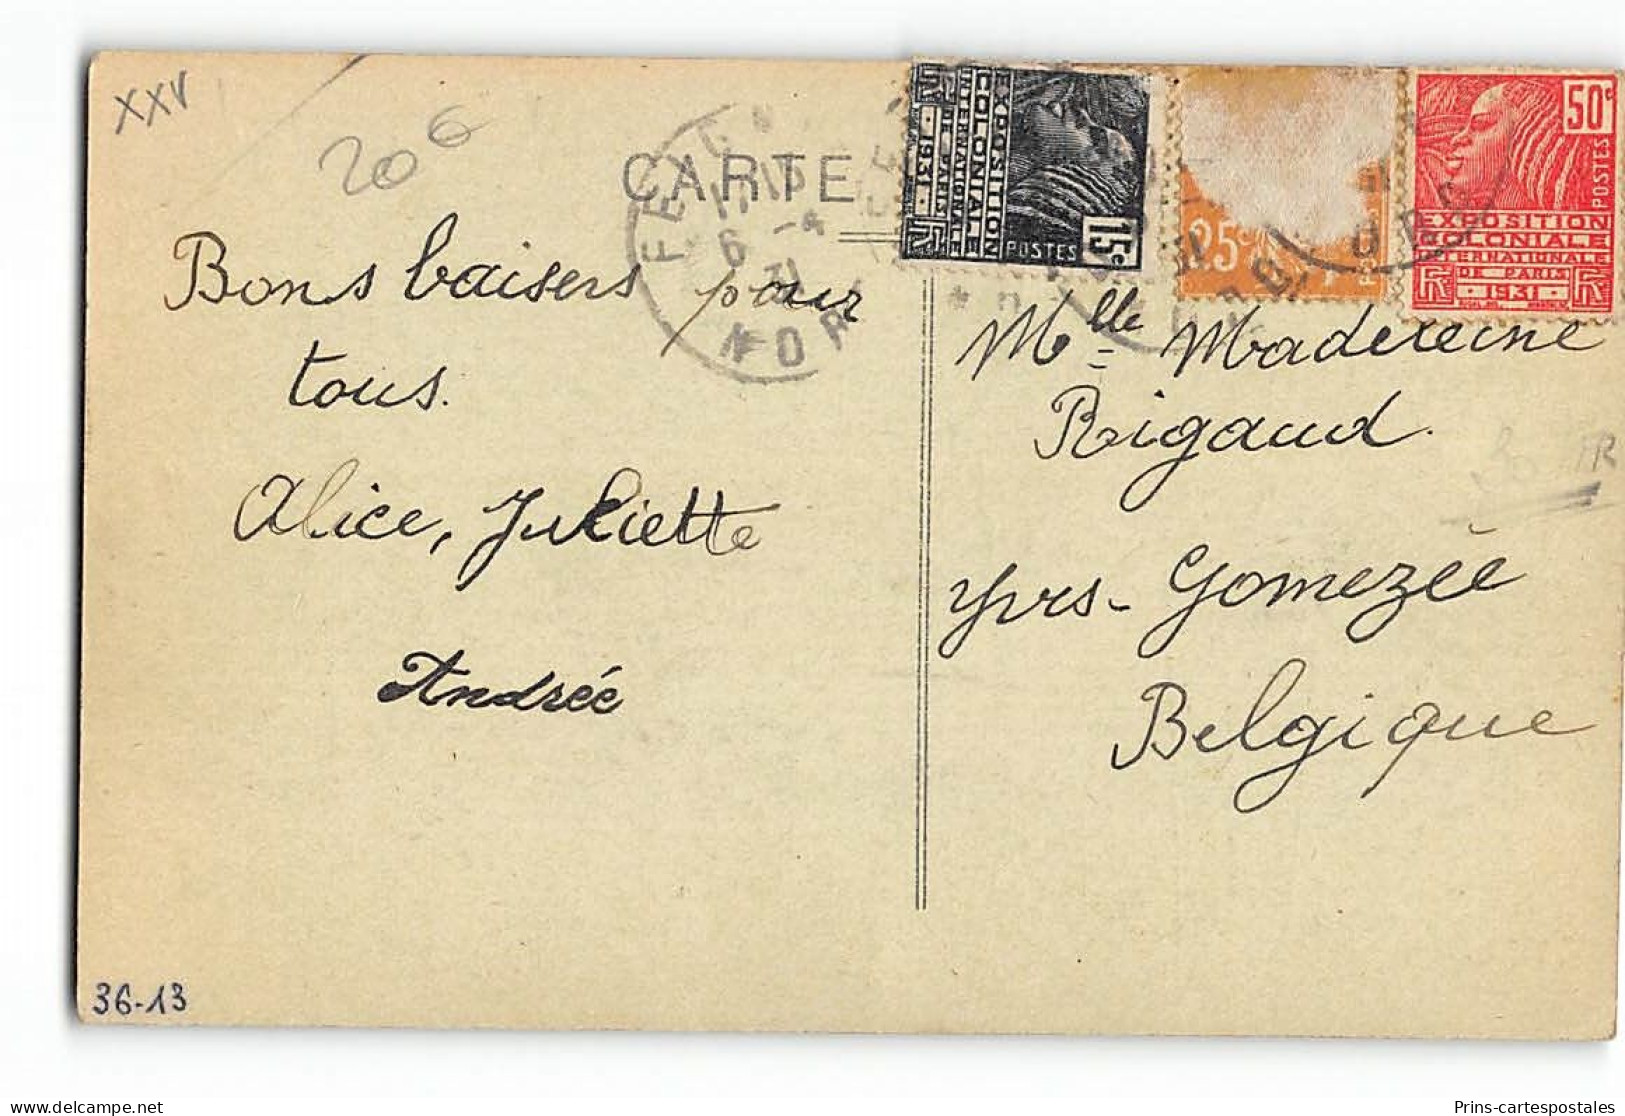 XXV
20 6
CARTE
NORD
6 -4
31
EXPOSITION
COLONIALE
INTERNATIONALE
DE PARIS
1931
POSTES
15c
25c
50c
POSTES
EXPOSITION
COLONIALE
INTERNATIONALE
DE PARIS
1931
Bons baisers pour
tous.
Alice, Juliette
Andrée
Mlle Madeleine
Rigaud.
Yvrs-Gomezée
Belgique
36-13
delcampe.net
Prins-cartespostales